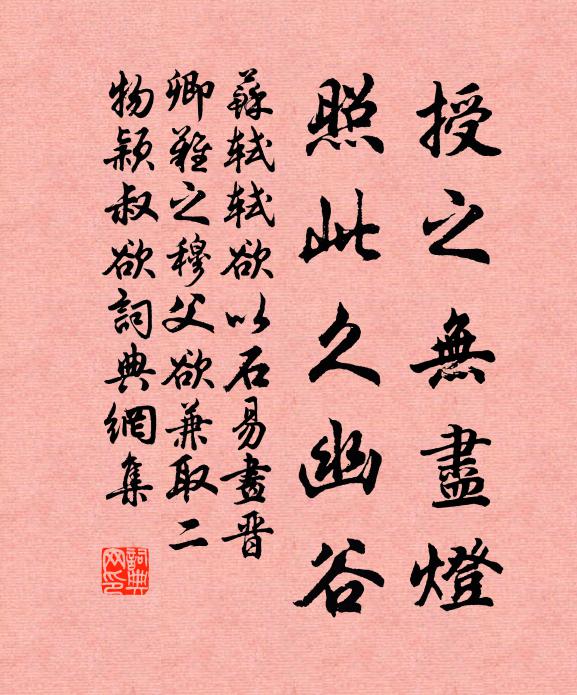 授之無盡燈
照此久幽谷
蘇軾軾欲以石易畫晋
卿難之穆父欲兼取二
物穎叔欲詞典網集
詞典网印